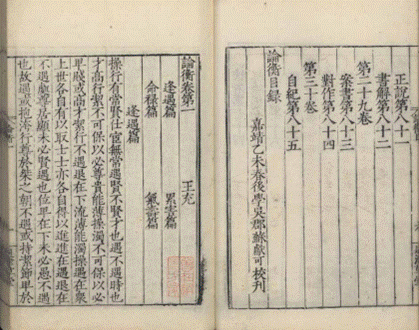 正說第八十一
書解第八十二
第二十九卷
案書第八十三
對作第八十四
第三十卷
自紀第八十五
論衡目録
嘉靖乙未春後學吳郡蘇獻可校刊
論衡卷第一
王充
逢遇篇
累害篇
命祿篇
氣壽篇
逢遇篇
操行有常賢仕宦無常遇賢不賢才也遇不遇時也
才高行潔不可保以必尊貴能薄操濁不可保以必
卑賤或高才潔行不遇退在下流薄能濁操遇在衆
上世各自有以取士士亦各自得以進進在遇退在
不遇處尊居顯未必賢遇也位卑在下未必愚不遇
也故遇或抱洿行尊於桀之朝不遇或持潔節卑於